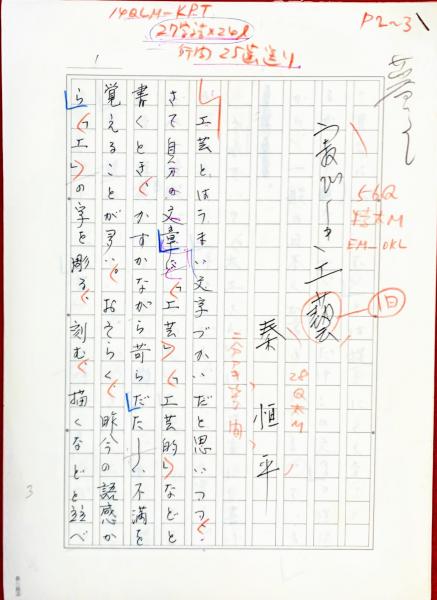 14QLM-KPT
27字詰×26l
行間 25歯送り
P2~3
1
56Q
特太M
EM-OKL
工藝
旧
秦 恒平
28Q太M
二分アキ
工芸とはうまい文字づかいだと思いつつ、
さて自分の文章に「工芸」「工芸的」などと
書くとき、かすかながら苛らだたしい不満を
覚えることが多い。おそらく、昨今の語感か
ら「工」の字を彫る、刻む、描くなどと並べ
3